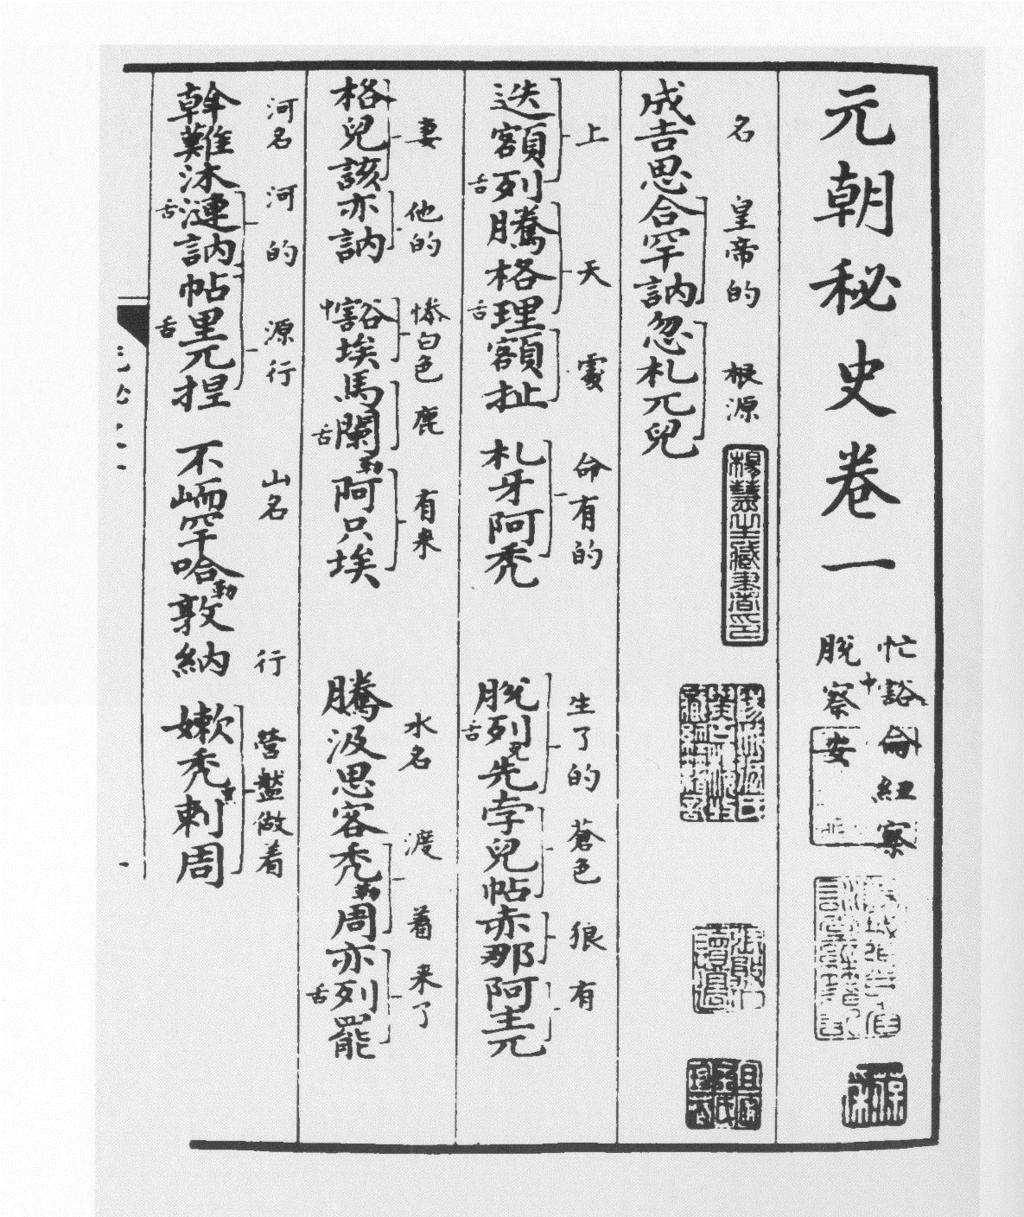 元朝秘史卷一
忙中豁侖紐察
脫察安
名 皇帝的 根源
成吉思合罕訥忽札兀兒
上 天 處 命有的 生了的 蒼色 狼 有
迭額舌列騰格舌理額扯 札牙阿禿 脫舌列兒先孛兒帖赤那阿主兀
妻 他的 慘白色 鹿 有来 水名 渡着 来了
格兒該亦訥 中豁埃馬舌闌勒阿只埃 騰汲思客禿勒周亦舌列罷
河名 河的 源行 山名 行 營盤做着
斡難沐舌漣訥帖舌里兀揑 不峏罕哈勒敦納 嫩禿黑剌周
楊慧之藏書畫印